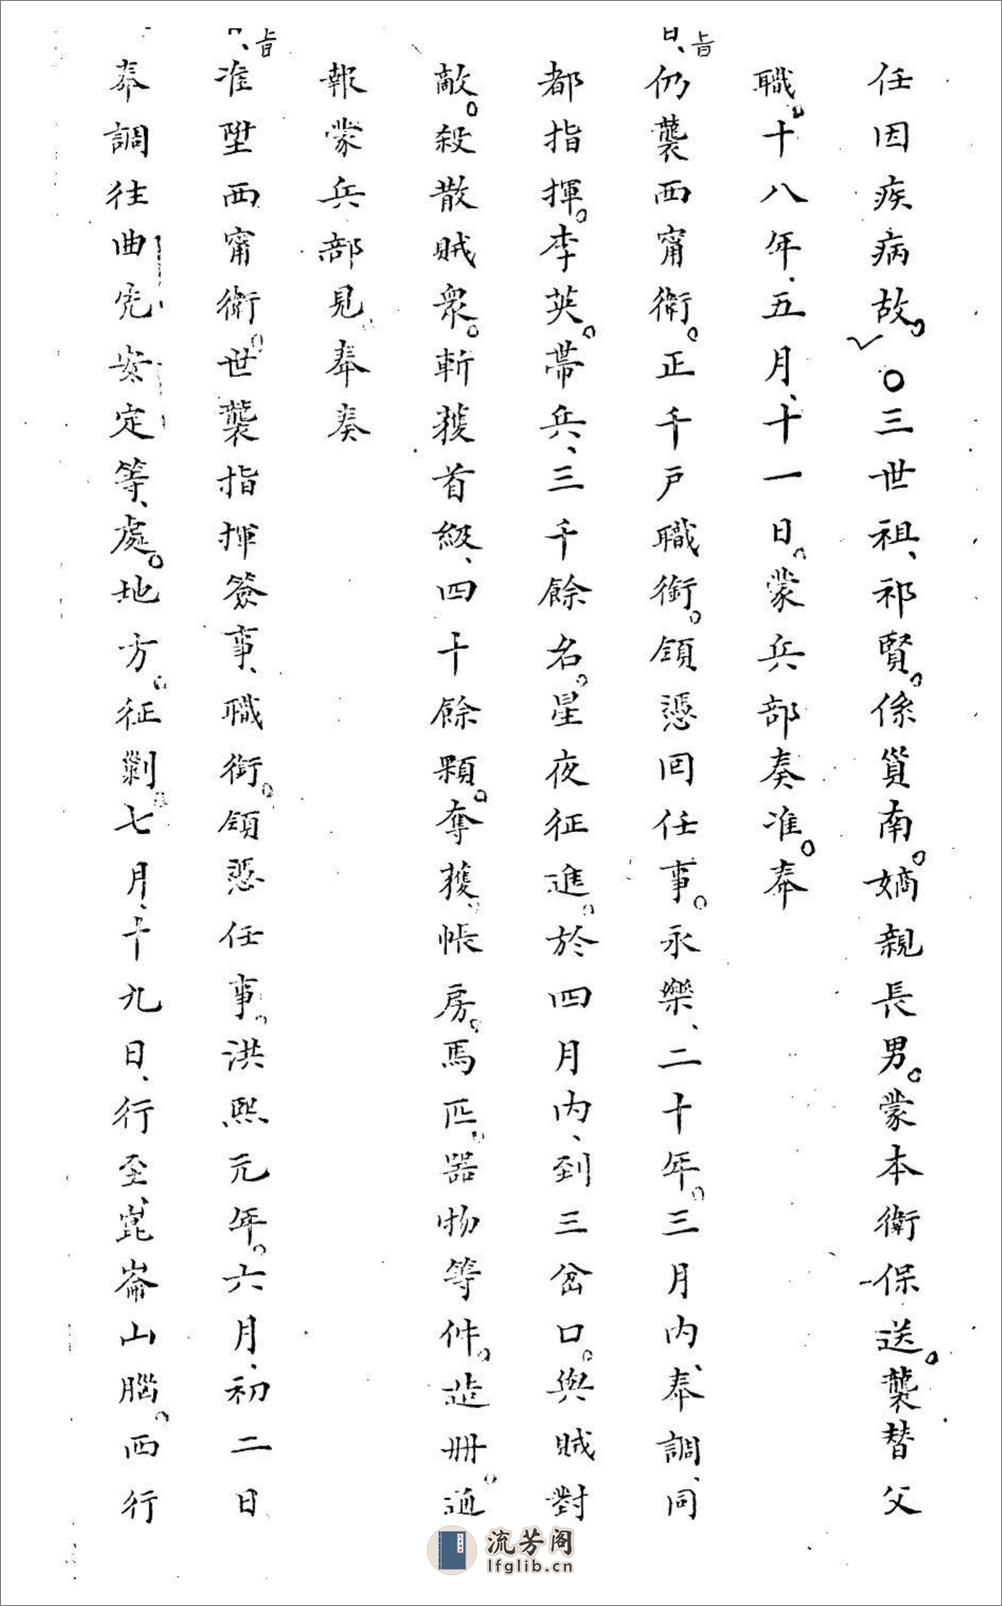 任因疾病故。○三世祖、祁賢。係貟南。嫡親長男。蒙本衛保送。襲替父
職。十八年、五月、十一日。蒙兵部奏准。奉
旨、仍襲西甯衛。正千戶職銜。領憑回任事。永樂、二十年。三月內、奉調、同
都指揮。李英。帶兵、三千餘名。星夜征進。於四月內、到三岔口。與賊對
敵。殺散賊衆。斬獲首級、四十餘顆。奪獲。帳房。馬匹。器物等件。造冊。通
報蒙兵部見奉奏
旨、准陞西甯衛。世襲指揮僉事、職銜。領憑任事。洪熙元年。六月、初二日
奉調往曲先安定等、處。地方。征剿。七月、十九日、行至、崑崙山腦。西行
流芳阁
lfglib.cn